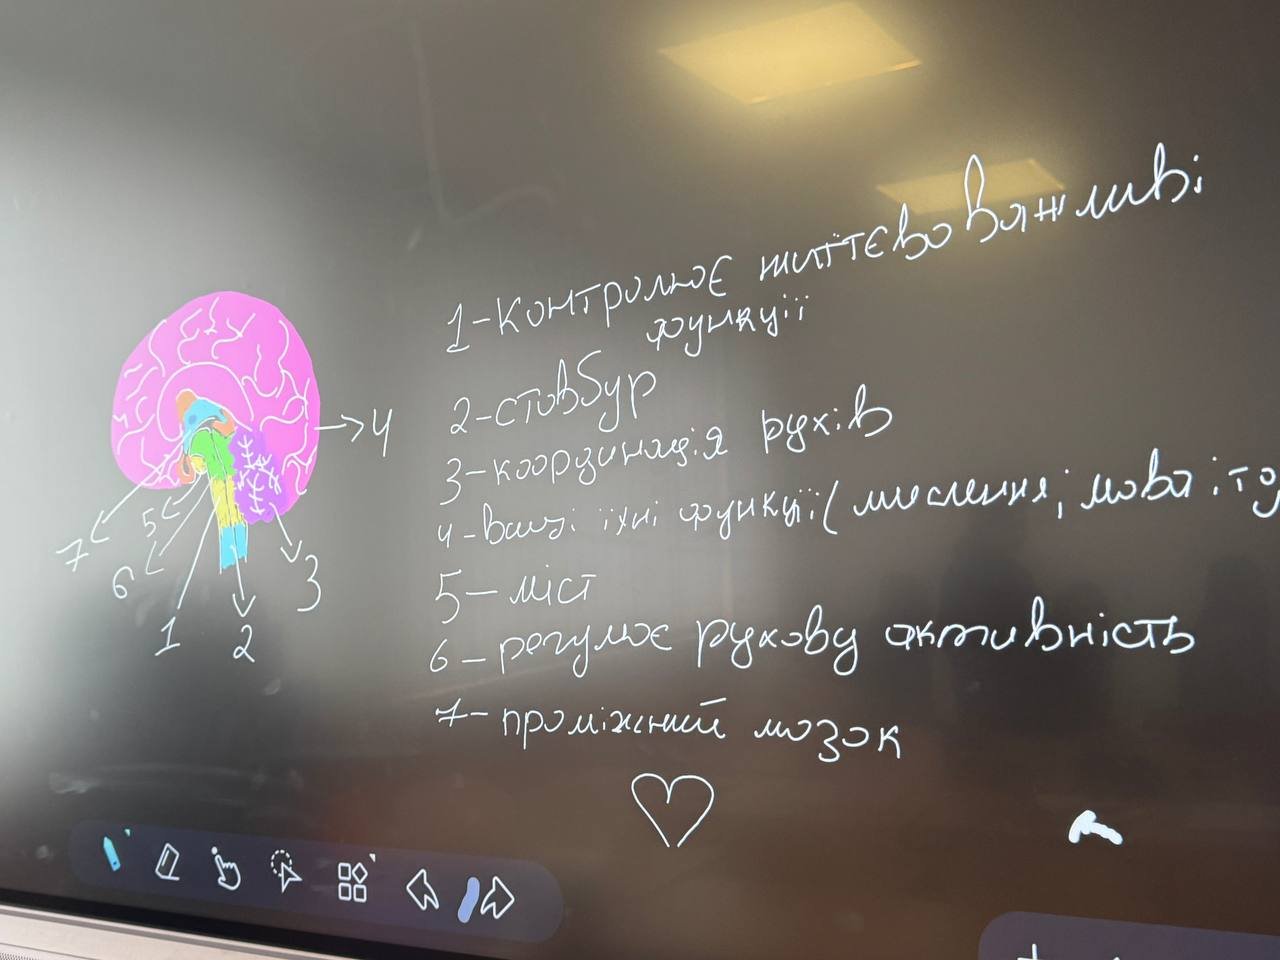 1-Контролює життєво важливі
функції
2-стовбур
3-координація рухів
4-вищі їхні функції (мислення, мова і т
5-міст
6-регулює рухову активність
7-проміжний мозок
4
7
5
6
1
2
3